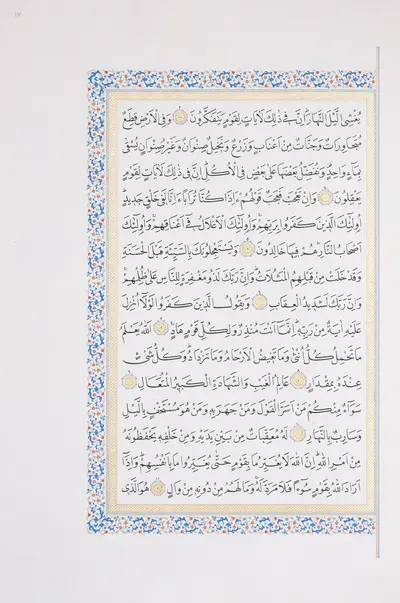 يُغْشِي الَّيْلَ النَّهَارَ اِنَّ فٖي ذٰلِكَ لَاٰيَاتٍ لِقَوْمٍ يَتَفَكَّرُونَ وَفِي الْاَرْضِ قِطَعٌ
مُتَجَاوِرَاتٌ وَجَنَّاتٌ مِنْ اَعْنَابٍ وَزَرْعٌ وَنَخٖيلٌ صِنْوَانٌ وَغَيْرُ صِنْوَانٍ يُسْقٰى
بِمَاءٍ وَاحِدٍ وَنُفَضِّلُ بَعْضَهَا عَلٰى بَعْضٍ فِي الْاُكُلِ اِنَّ فٖي ذٰلِكَ لَاٰيَاتٍ لِقَوْمٍ
يَعْقِلُونَ وَاِنْ تَعْجَبْ فَعَجَبٌ قَوْلُهُمْ ءَاِذَا كُنَّا تُرَابًا ءَاِنَّا لَفٖي خَلْقٍ جَدٖيدٍ
اُولٰئِكَ الَّذٖينَ كَفَرُوا بِرَبِّهِمْ وَاُولٰئِكَ الْاَغْلَالُ فٖي اَعْنَاقِهِمْ وَاُولٰئِكَ
اَصْحَابُ النَّارِ هُمْ فٖيهَا خَالِدُونَ وَيَسْتَعْجِلُونَكَ بِالسَّيِّئَةِ قَبْلَ الْحَسَنَةِ
وَقَدْ خَلَتْ مِنْ قَبْلِهِمُ الْمَثُلَاتُ وَاِنَّ رَبَّكَ لَذُو مَغْفِرَةٍ لِلنَّاسِ عَلٰى ظُلْمِهِمْ
وَاِنَّ رَبَّكَ لَشَدٖيدُ الْعِقَابِ وَيَقُولُ الَّذٖينَ كَفَرُوا لَوْلَا اُنْزِلَ
عَلَيْهِ اٰيَةٌ مِنْ رَبِّهٖ اِنَّمَا اَنْتَ مُنْذِرٌ وَلِكُلِّ قَوْمٍ هَادٍ اَللّٰهُ يَعْلَمُ
مَا تَحْمِلُ كُلُّ اُنْثٰى وَمَا تَغٖيضُ الْاَرْحَامُ وَمَا تَزْدَادُ وَكُلُّ شَيْءٍ
عِنْدَهُ بِمِقْدَارٍ عَالِمُ الْغَيْبِ وَالشَّهَادَةِ الْكَبٖيرُ الْمُتَعَالِ
سَوَاءٌ مِنْكُمْ مَنْ اَسَرَّ الْقَوْلَ وَمَنْ جَهَرَ بِهٖ وَمَنْ هُوَ مُسْتَخْفٍ بِالَّيْلِ
وَسَارِبٌ بِالنَّهَارِ لَهُ مُعَقِّبَاتٌ مِنْ بَيْنِ يَدَيْهِ وَمِنْ خَلْفِهٖ يَحْفَظُونَهُ
مِنْ اَمْرِ اللّٰهِ اِنَّ اللّٰهَ لَا يُغَيِّرُ مَا بِقَوْمٍ حَتّٰى يُغَيِّرُوا مَا بِاَنْفُسِهِمْ وَاِذَا
اَرَادَ اللّٰهُ بِقَوْمٍ سُوءًا فَلَا مَرَدَّ لَهُ وَمَا لَهُمْ مِنْ دُونِهٖ مِنْ وَالٍ هُوَ الَّذٖي